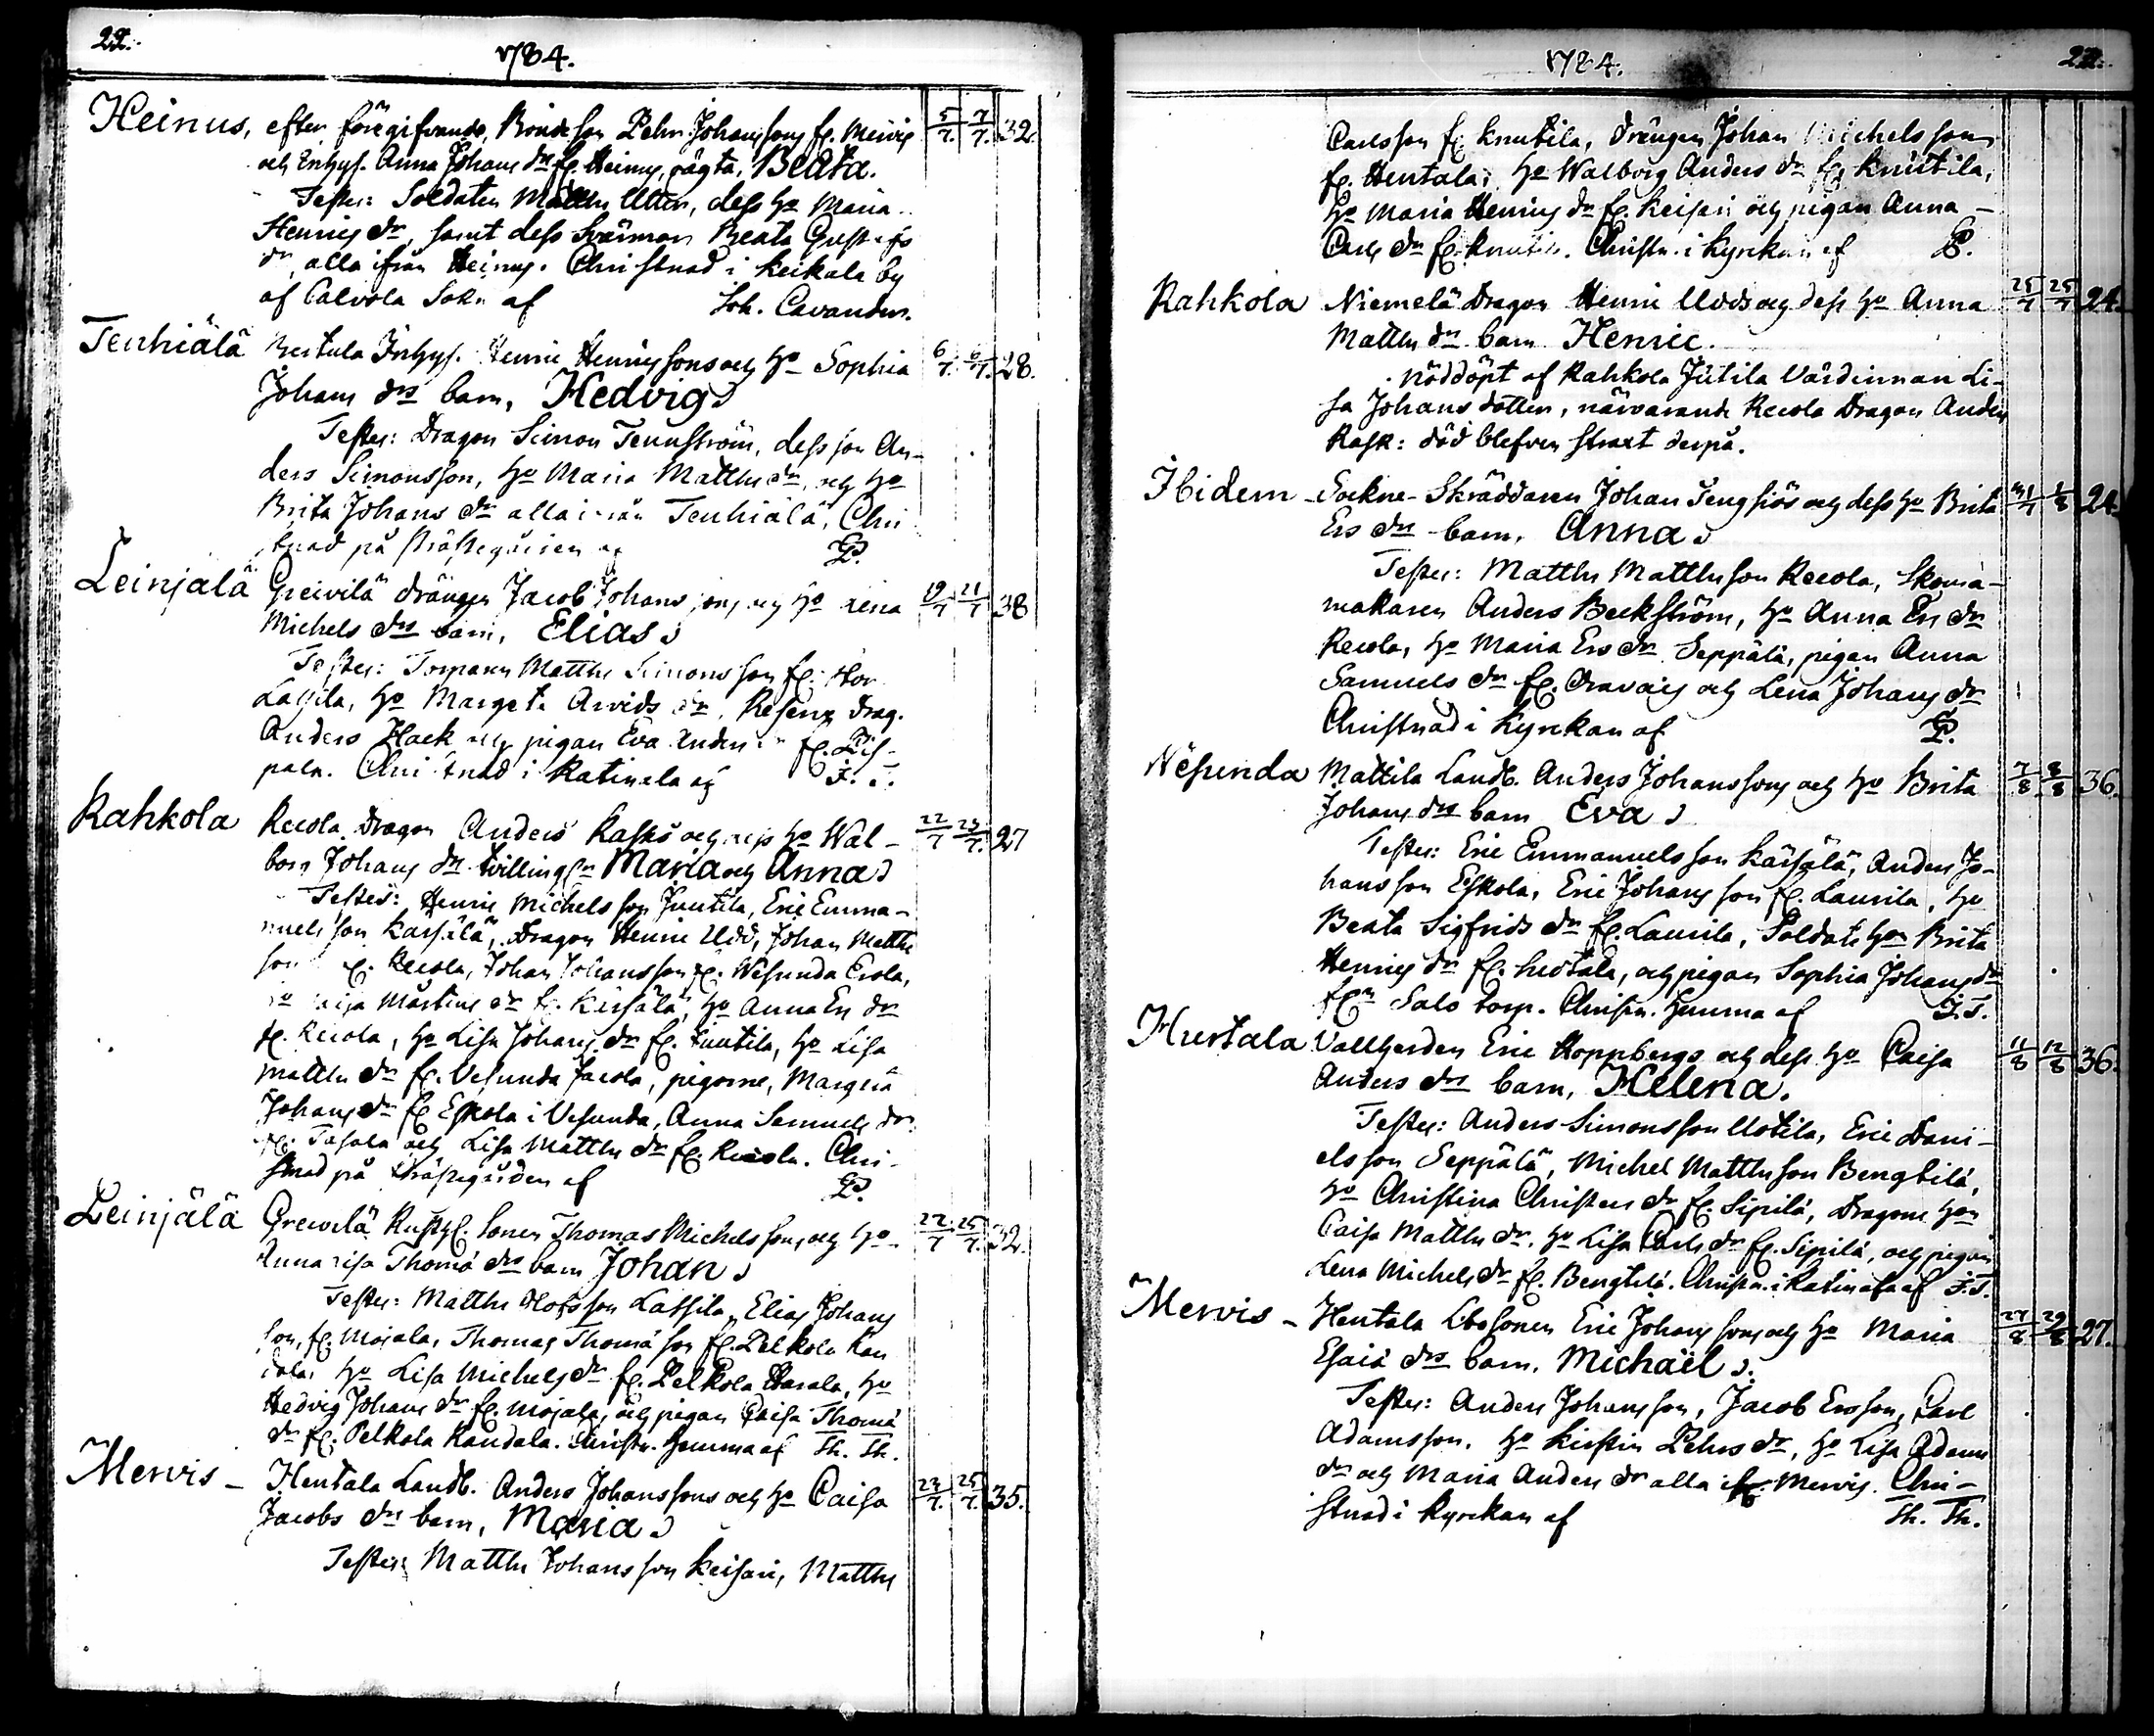 22.
1784.
Heinus, efter föregifvande, Bonde son Pehr Johanssons fr. Mervis 5/7. 7/7. 32
och Inhys. Anna Johans dr fr. Heinus, oägta, Beata.
Testes: Soldaten Matths Utter, dess ho Maria
Henrics dr, samt dess Svärmor Beata Gustafs
dr, alla ifrån Heinus. Christnad i Keikala by
af Calvola Sokn af Joh. Cavander.
Tenhiälä Inhys. Henric Henricssons och ho Sophia 6/7. 6/7. 28.
Johans drs barn, Hedvig
Testes: Dragon Simon Tennström, dess son An-
ders Simonsson, ho Maria Matths dr, och ho
Brita Johans dr alla ifrån Tenhiälä, Chri
stnad på Prästegården af P.
Leinjälä Greivilä drängen Jacob Johanssons och ho Lena 19/7 21/7 38
Michels drs barn, Elias
Testes: Torparen Matths Simonsson fr.
Lassila, ho Margeta Arvids dr, Reserv drag.
Anders Hack och pigan Eva Anders dr fr.
Christnad i Ratinala af F. T.
Rahkola Recola Dragon Anders Rasks och dess ho Wal- 22/7 23/7. 27
borg Johans drs tvillingar Maria och Anna
Testes: Henric Michelsson Juutila, Eric Emma-
nuelsson Karsälä, Dragon Henric Udd, Johan Matths
son fr. Recola, Johan Johansson fr. Wesunda Erola,
ho Caisa Mårtins dr fr. Kärsälä, ho Anna Ers dr
fr. Recola, ho Lisa Johans dr fr. Juutila, ho Lisa
Matths dr fr. Vesunda Jacola, pigorne, Margeta
Johans dr fr Eskola i Vesunda, Anna Samuels dr
fr. och Lisa Matths dr fr. Recola. Chri-
stnad på Prästegården af P.
Leinjälä Grewelä Rusth. sonen Thomas Michelssons och ho 22/7 25/7. 32.
Anna Lisa Thomæ drs barn Johan
Testes: Matths Olofsson Lassila, Elias Johans
son, fr. Mojala, Thomas Thomæson fr. Pelkola Kan
dola, ho Lisa Michels dr fr. Pelkola Harala, ho
Hedvig Johans dr fr. Mojala, och pigan Caisa Thomæ
dr fr. Pelkola Kandala. Christn. hemma af Th. Th.
Mervis - Hentala Landb. Anders Johanssons och ho Caisa 23/7. 25/7. 35.
Jacobs drs barn, Maria
Testes: Matths Johansson Keisari, Matths
1784.
Carlsson fr. Knutila, drängen Johan Michelsson
fr. Hentala, ho Walborg Anders dr fr. Knutila,
ho Maria Henrics dr fr. Keisari och pigan Anna -
Carls dr fr. Knutila. Christn. i Kyrckan af P.
Rahkola Niemelä Dragon Henric Udds och dess ho Anna 25/7 25/7 24.
Matths drs barn Henric.
nöddöpt af Rahkola Jutila Värdinnan Li-
sa Johans dotter, närvarande Recola Dragon Anders
Rask: död blefven straxt derpå.
Ibidem - Sockne-Skräddaren Johan Tengsjös och dess ho Brita 31/7 1/8 24
Ers drs barn, Anna
Testes: Matths Matthsson Recola, Skoma-
makaren Anders Beckström, ho Anna Ers dr
Recola, ho Maria Ers dr Seppälä, pigan Anna
Samuels dr fr. och Lena Johans dr
Christnad i Kyrckan af P.
Wesunda Mattila Landb. Anders Johanssons och ho Brita 7/8. 8/8 36.
Johans drs barn Eva
Testes: Eric Emmanuelsson Kärsälä, Anders Jo-
hansson Eskola, Eric Johansson fr. Laurila, ho
Beata Sigfrids dr fr. Laurila, Soldats hon Brita
Henrics dr fr. och pigan Sophia Johans dr
frn Salo torp. Christn. hemma af F. T.
Hurtala Vallherden Eric Hoppbergs och dess ho Caisa 11/8 12/8 36.
Anders drs barn, Helena.
Testes: Anders Simonsson Uotila, Eric Dani-
elsson Seppälä, Michel Matthsson Bengtilä,
ho Christina Christers dr fr. Sipilä, Dragons hon
Caisa Matths dr, ho Lisa Carls dr fr. Sipilä, och pigan
Lena Michels dr fr. Bengtilä. Christn. i Ratinala af F. T.
Mervis - Hentala Lbosonen Eric Johanssons och ho Maria 27/8 29/8 27.
Esaiæ drs barn, Michaël
Testes: Anders Johansson, Jacob Ersson, Carl
Adamsson, ho Kirstin Pehrs dr, ho Lisa Adams
dr och Maria Anders dr alla ifr. Mervis. Chri-
stnad i Kyrckan af Th. Th.